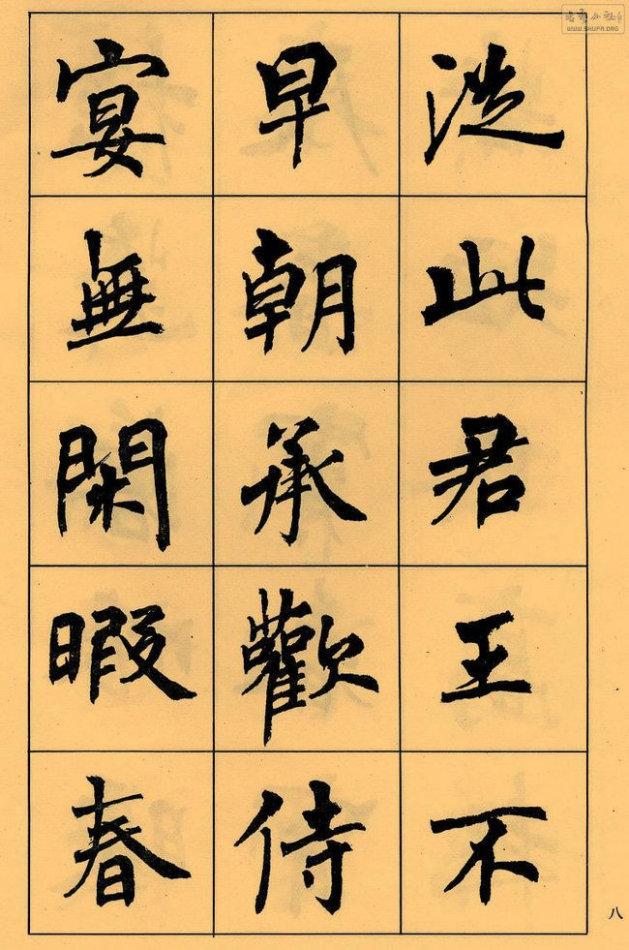 從此君王不
早朝承歡侍
宴無閑暇春
八
WWW.SHUFA.ORG